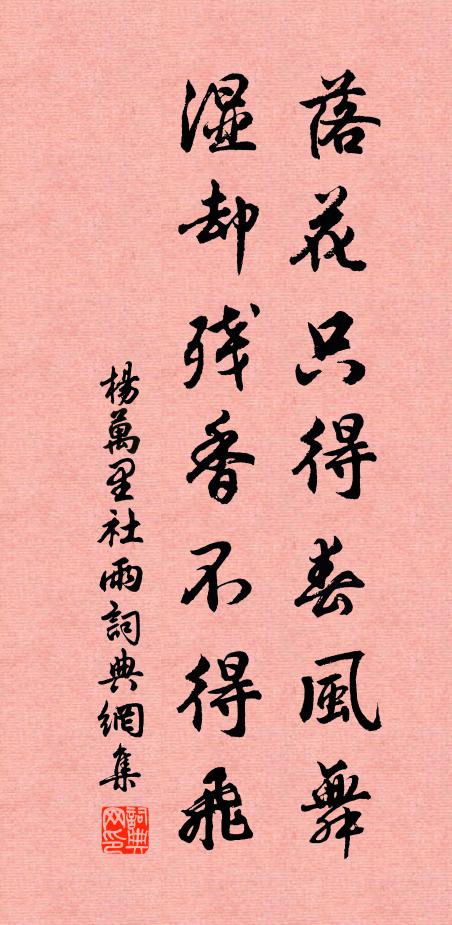 落花只得春風舞
湿却残香不得飛
楊萬里社雨詞典網集
詞典网印